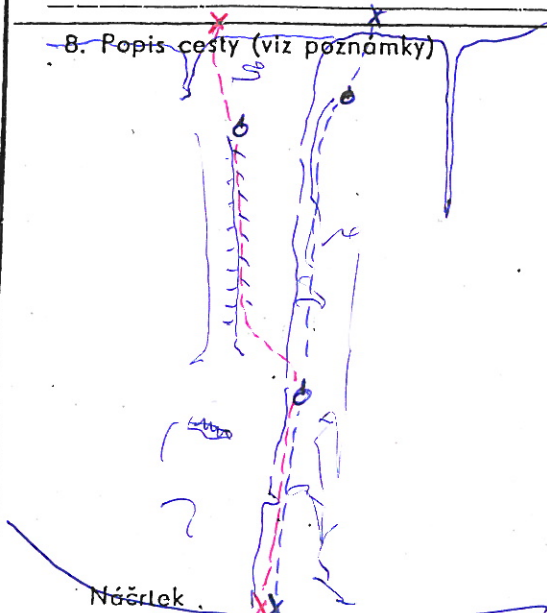 8. Popis cesty (viz poznámky)
Náčrtek